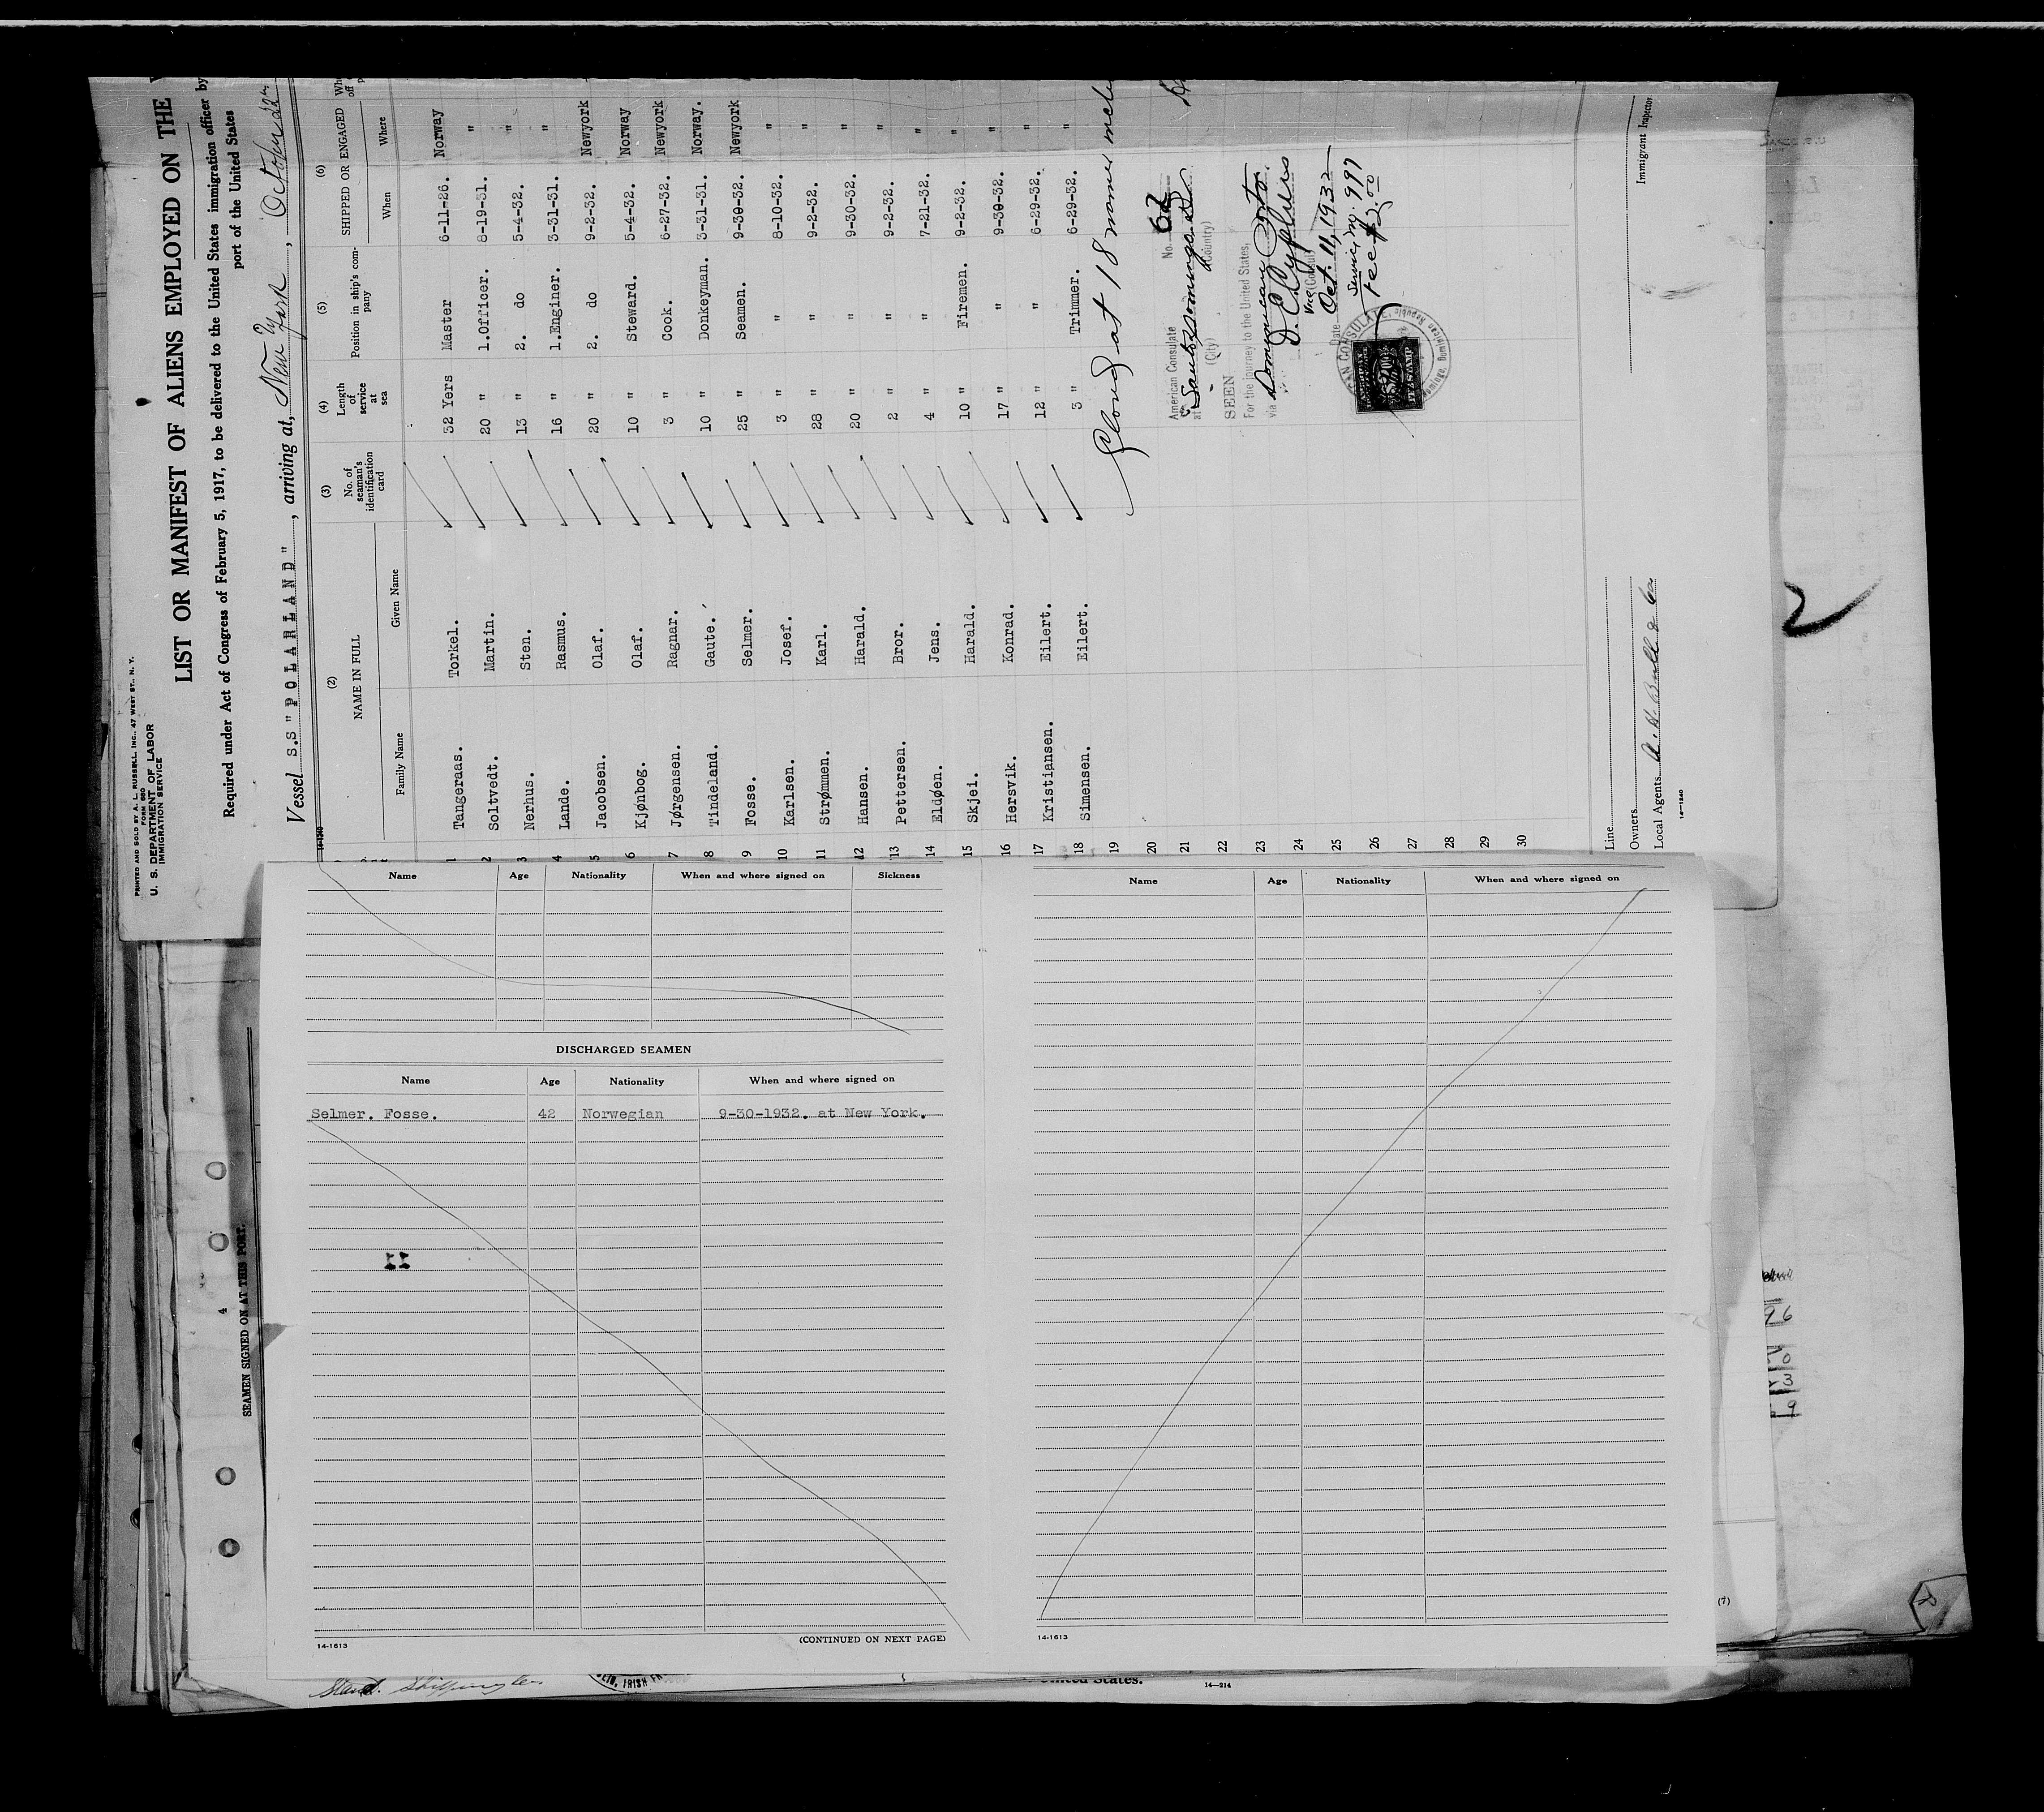 PRINTED AND SOLD BY A. L. RUSSELL, INC., 47 WEST ST., N. Y.
FORM 680
U. S. DEPARTMENT OF LABOR
IMMIGRATION SERVICE
LIST OR MANIFEST OF ALIENS EMPLOYED ON THE
Required under Act of Congress of February 5, 1917, to be delivered to the United States immigration officer by
port of the United States
Vessel S.S "POLARLAND", arriving at, New York, October 22
14-1240
(2) (3) (4) (5) (6)
NAME IN FULL No. of seaman's identification card Length of service at sea Position in ship's company SHIPPED OR ENGAGED
Family Name Given Name When Where
1 Tangeraas. Torkel. 32 Yers Master 6-11-26. Norway
2 Soltvedt. Martin. 20 " 1.Officer. 8-19-31. "
3 Nerhus. Sten. 13 " 2. do 5-4-32. "
4 Lande. Rasmus. 16 " 1.Enginer. 3-31-31. "
5 Jacobsen. Olaf. 20 " 2. do 9-2-32. Newyork
6 Kjønbog. Olaf. 10 " Steward. 5-4-32. Norway
7 Jørgensen. Ragnar. 3 " Cook. 6-27-32. Newyork
8 Tindeland. Gaute. 10 " Donkeyman. 3-31-31. Norway.
9 Fosse. Selmer. 25 " Seamen. 9-30-32. Newyork
10 Karlsen. Josef. 3 " " 8-10-32. "
11 Strømmen. Karl. 28 " " 9-2-32. "
12 Hansen. Harald. 20 " " 9-30-32. "
13 Pettersen. Bror. 2 " " 9-2-32. "
14 Eldøen. Jens. 4 " " 7-21-32. "
15 Skjei. Harald. 10 " Firemen. 9-2-32. "
16 Hersvik. Konrad. 17 " " 9-30-32. "
17 Kristiansen. Eilert. 12 " " 6-29-32. "
18 Simensen. Eilert. 3 " Trimmer. 6-29-32. "
19 Closed at 18 names
20
21
22
23
24
25
26
27
28
29
30
American Consulate No. 62
at Santo Domingo
(City) (Country)
SEEN
For the journey to the United States,
via
Vice (Consul)
Date Oct. 11, 1932
Service No. 997
Fee $2.00
Line
Owners
Local Agents A. H. Bull & Co
Immigrant Inspector
14-1240
Name Age Nationality When and where signed on Sickness
DISCHARGED SEAMEN
Name Age Nationality When and where signed on
Selmer. Fosse. 42 Norwegian 9-30-1932. at New York.
14-1613
(CONTINUED ON NEXT PAGE)
Name Age Nationality When and where signed on
14-1613
4
SEAMEN SIGNED ON AT THIS PORT.
(7)
United States.
14-214